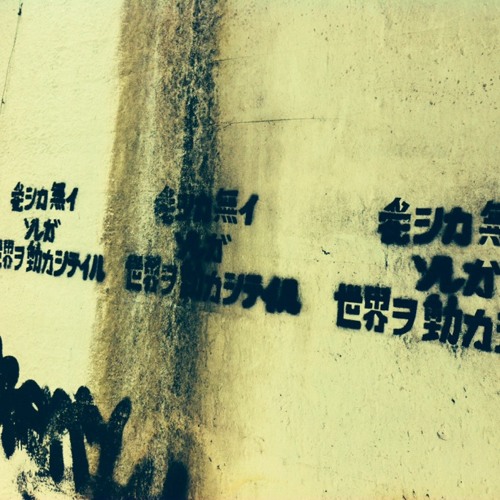 愛シカ無イ
ソレガ
世界ヲ動カシテイル
愛シカ無イ
ソレガ
世界ヲ動カシテイル
愛シカ無
ソレガ
世界ヲ動カシ